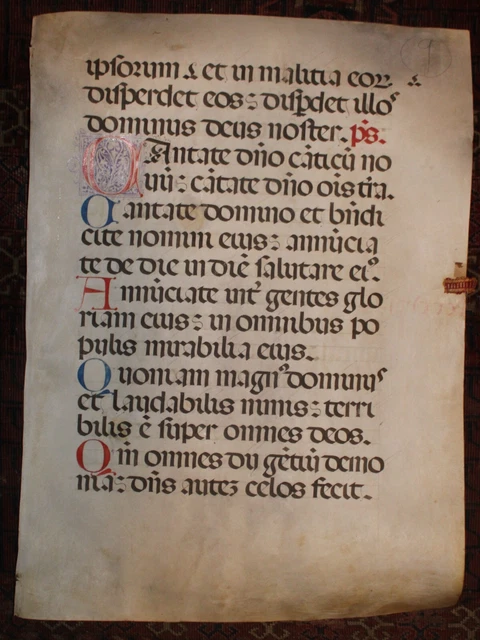 ipsorum . et in malitia eoꝝ.
disperdet eos : disp̱det illoꝰ
dominus deus noster. p̄s.
CAntate dño cãticũ no
uũ : cãtate dño oĩs tr̃a.
Cantate domino et bñdi
cite nomini eius : annũcia
te de die in diẽ salutare eiꝰ.
Annũciate int̃ gentes glo
riam eius : in omnibus po
pulis mirabilia eius.
Quoniam magnꝰ dominuˢ
et laudabilis nimis : terri
bilis ẽ super omnes deos.
Qm̃ omnes dii gẽtiũ demo
nia : dñs autez celos fecit.